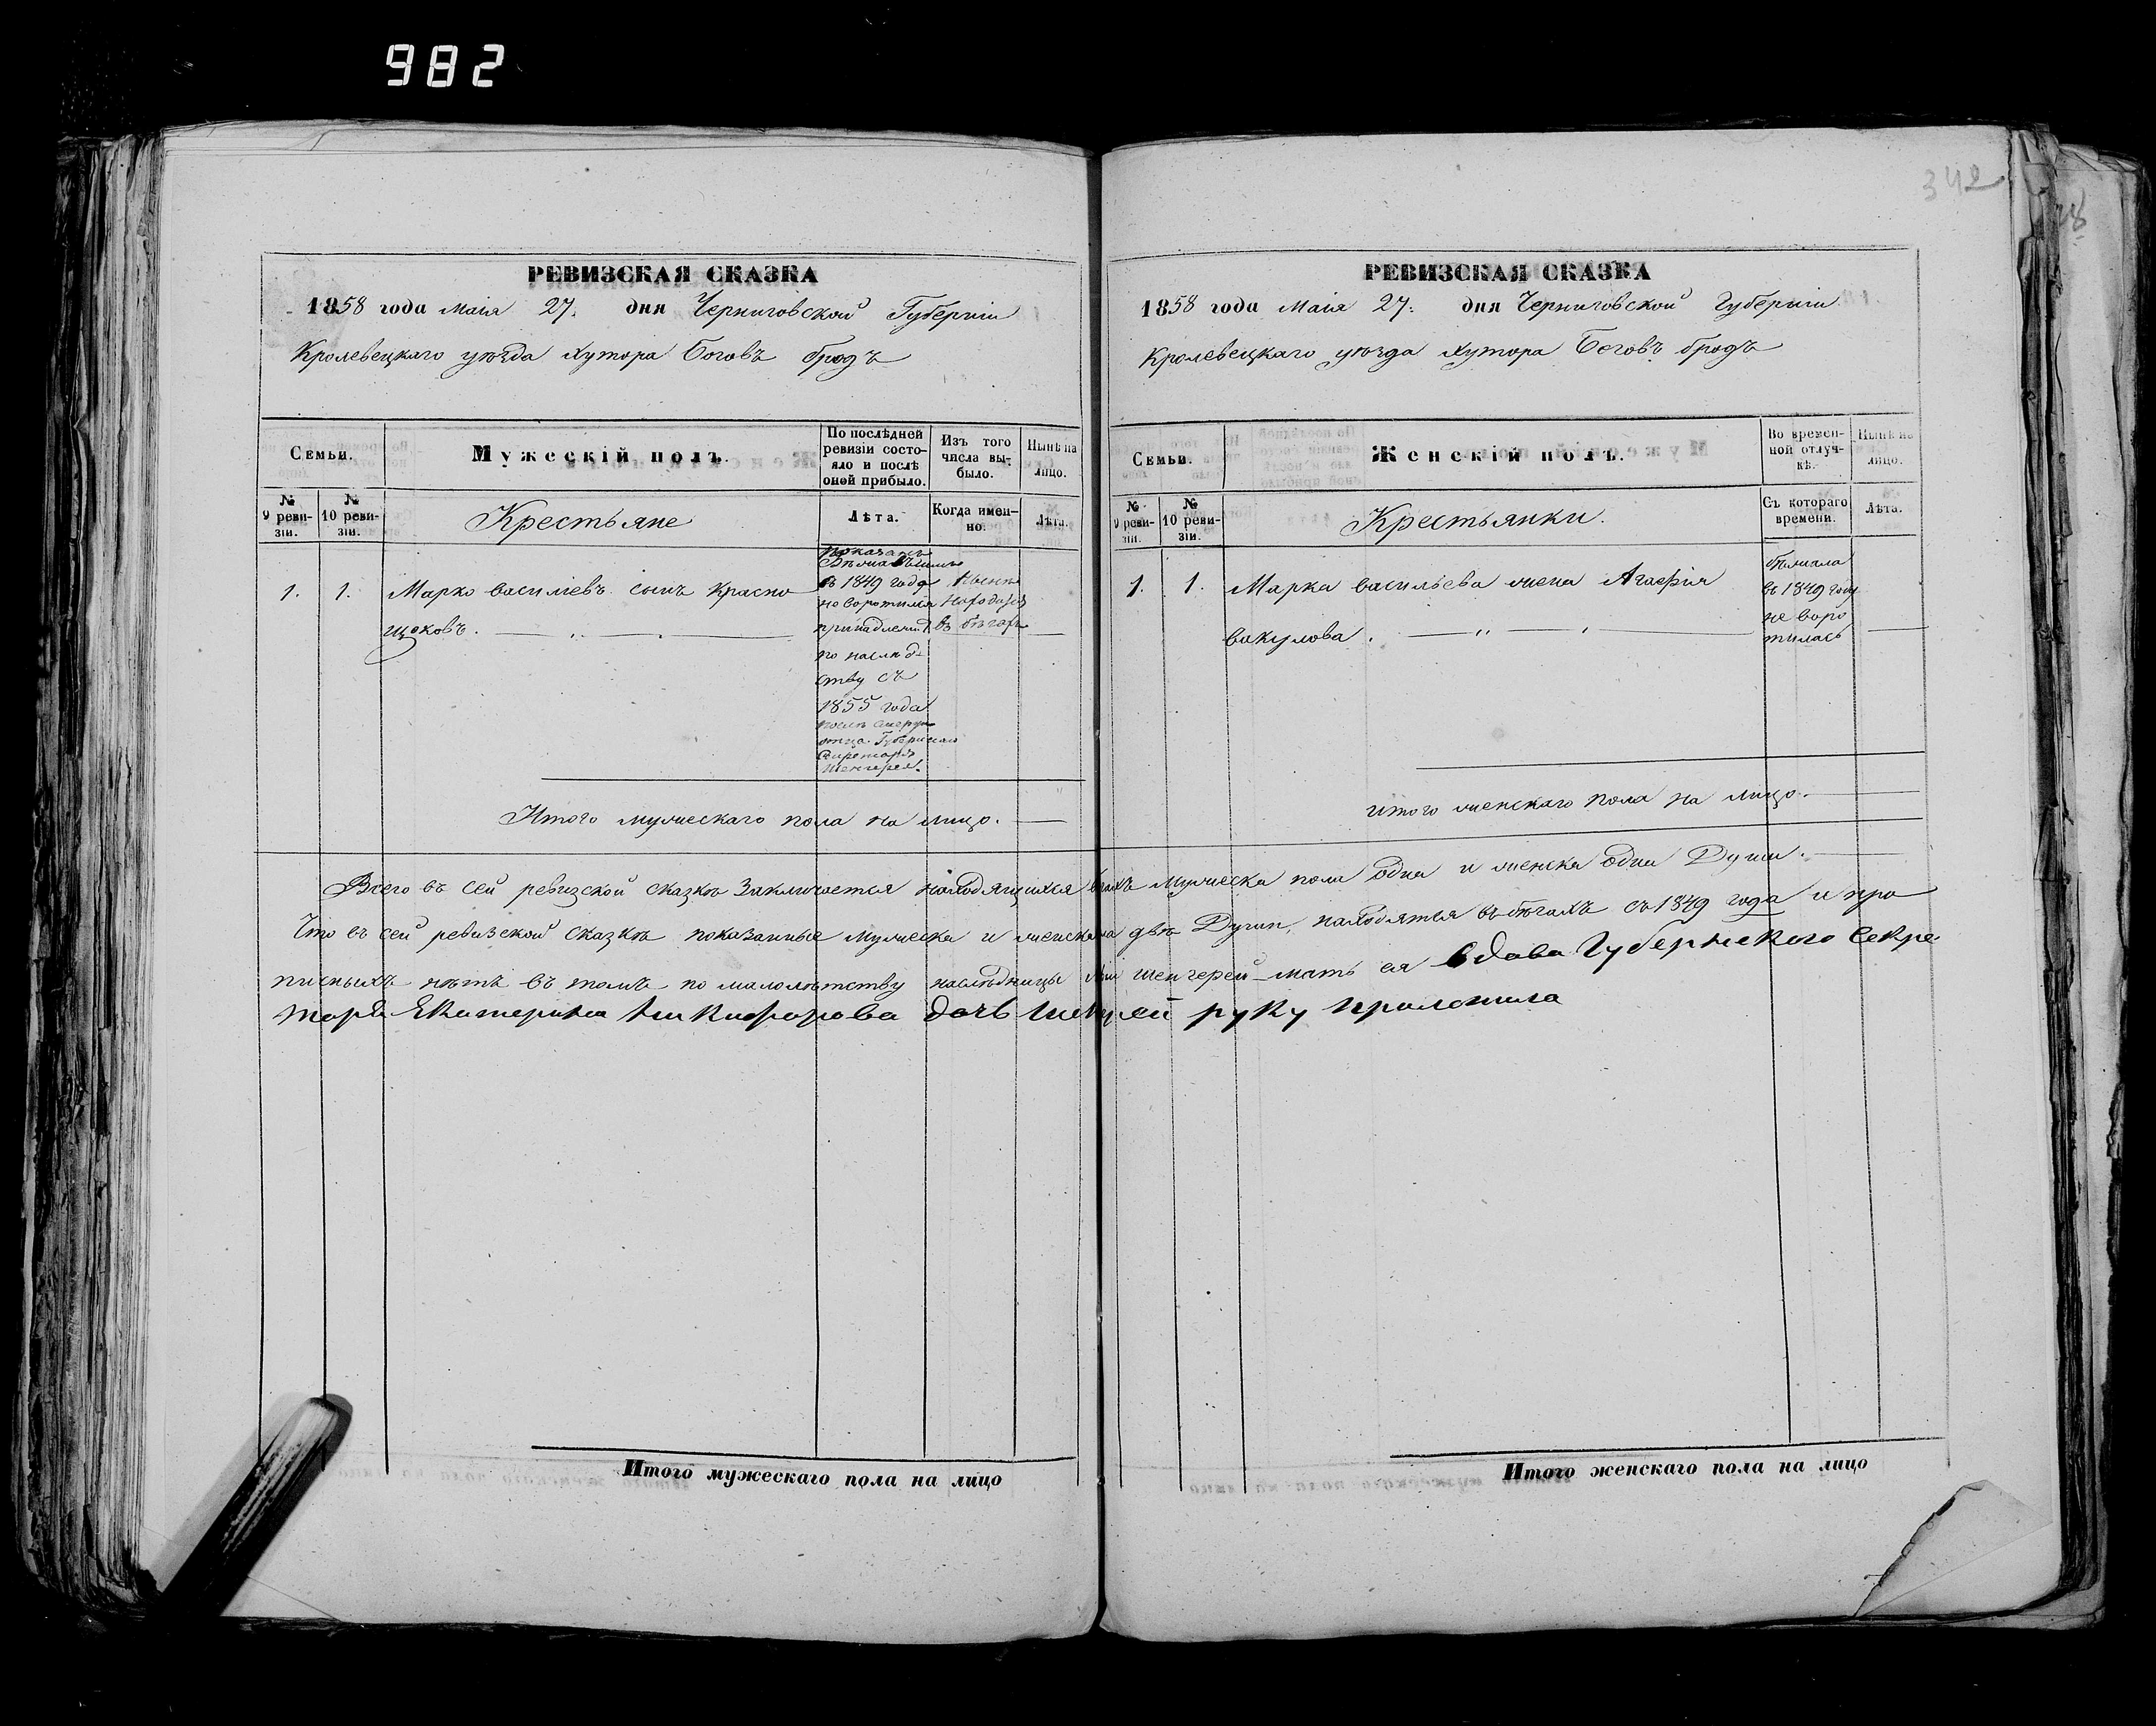 982
342
28
РЕВИЗСКАЯ СКАЗКА
1858 года Маія 27. дня Черниговской Губерніи
Кролевецкаго уѣзда хутора Боговъ бродъ
Семьи.
Мужескій полъ.
По послѣдней ревизіи состояло и послѣ оной прибыло.
Изъ того числа выбыло.
Нынѣ на лицо.
№ 9 ревизіи.
№ 10 ревизіи.
Крестьяне
Лѣта.
Когда именно.
Лѣта.
1. 1. Марко васильевъ сынъ Красно
щоковъ.
показанъ
въ 1849 году
не воротился
принадлежит
по наслѣд
ству съ
1855 года
послѣ смерти
отца Губернскаго
Секретаря
Шенгерея.
въ бѣгахъ
Итого мужескаго пола на лицо.
РЕВИЗСКАЯ СКАЗКА
1858 года Маія 27. дня Черниговской Губерніи
Кролевецкаго уѣзда хутора Боговъ бродъ
Семьи.
Женскій полъ.
Во временной отлучкѣ.
Нынѣ на лицо.
№ 9 ревизіи.
№ 10 ревизіи.
Крестьянки.
Съ котораго времени.
Лѣта.
1. 1. Марка васильева жена Агафія
вакулова.
бѣжала
въ 1849 году
не воро
тилась
итого женскаго пола на лицо.
Всего въ сей ревизской сказкѣ заключается находящихся въ бѣгахъ мужеска пола одна и женска одна Души.
Что въ сей ревизской сказкѣ показанные мужеска и женска пола двѣ Души, находятся въ бѣгахъ съ 1849 года и про
писныхъ нѣтъ въ томъ по малолѣтству наслѣдницы Шенгерей мать ея вдова Губернскаго Секре
таря Екатерина Никифорова дочь Шенгерей руку приложила
Итого мужескаго пола на лицо
Итого женскаго пола на лицо